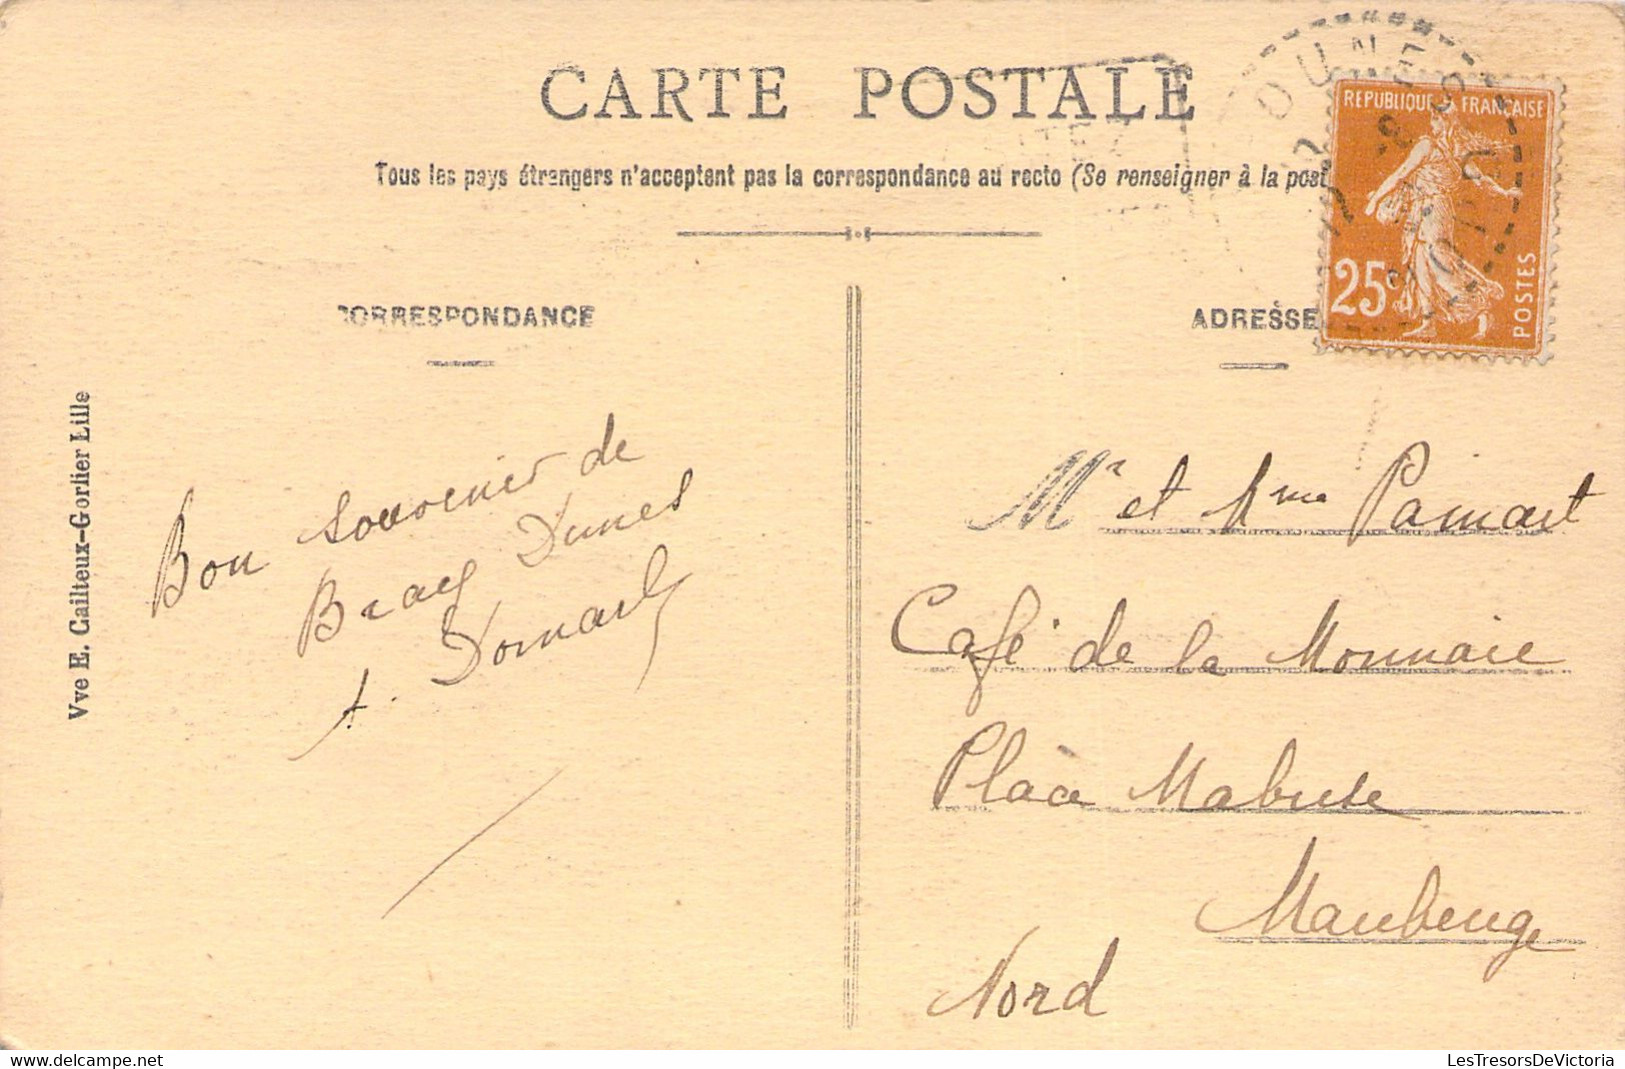 CARTE POSTALE
Tous les pays étrangers n'acceptent pas la correspondance au recto (Se renseigner à la post
CORRESPONDANCE
ADRESSE
REPUBLIQUE FRANÇAISE
25c
POSTES
DUNES
Vve E. Cailteux-Gorlier Lille
Bon souvenir de
Bray Dunes
A.
Mr et Mme Pamart
Café de la Monnaie
Place Mabuse
Maubeuge
Nord
LesTresorsDeVictoria